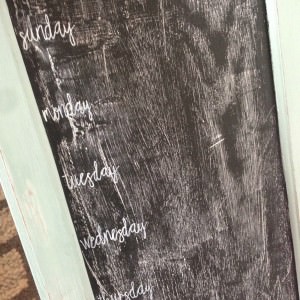 sunday
monday
tuesday
wednesday
thursday